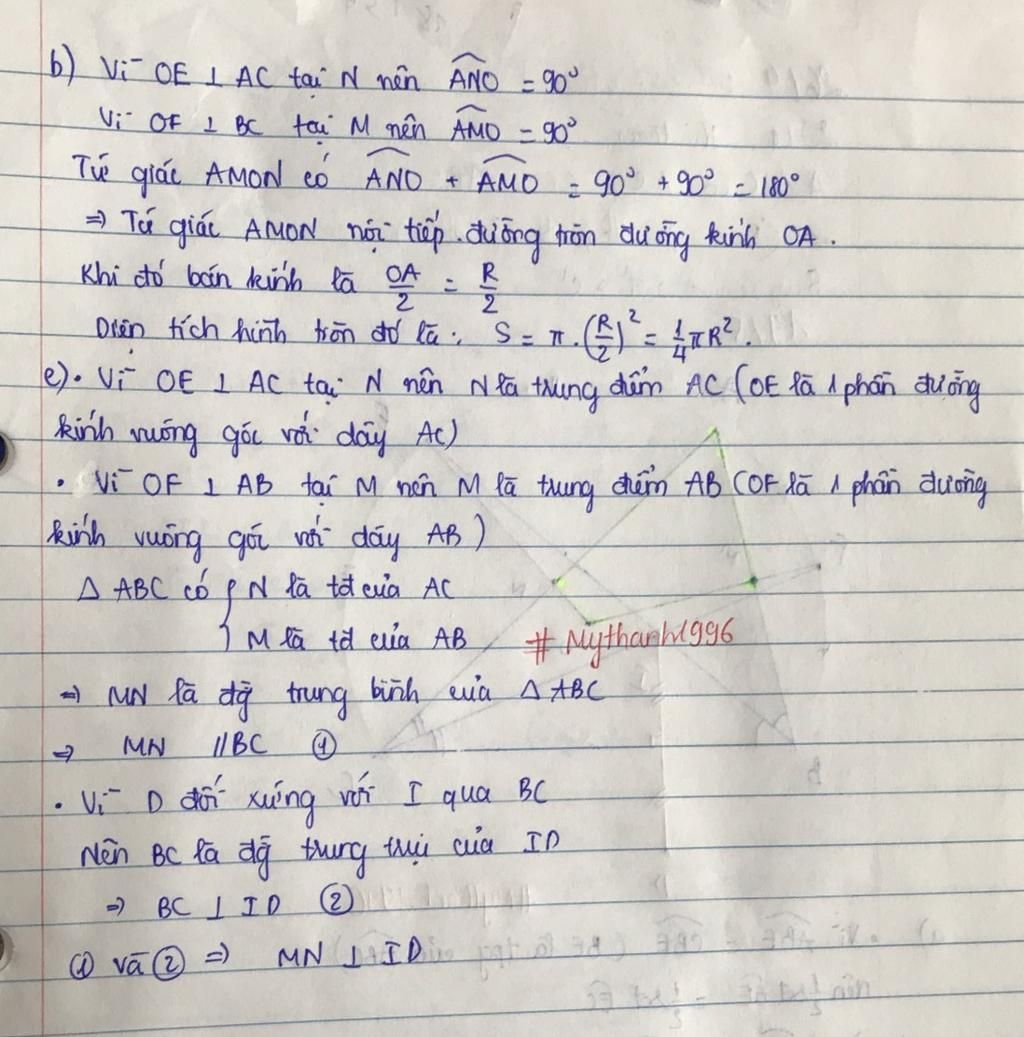 b) Vì OE ⊥ AC tại N nên ∠ANO = 90°
Vì OF ⊥ BC tại M nên ∠AMO = 90°
Tứ giác AMON có ∠ANO + ∠AMO = 90° + 90° = 180°
⇒ Tứ giác AMON nội tiếp đường tròn đường kính OA.
Khi đó bán kính là OA/2 = R/2
Diện tích hình tròn đó là: S = π.(R/2)² = 1/4 πR².
c). Vì OE ⊥ AC tại N nên N là trung điểm AC (OE là 1 phần đường
kính vuông góc với dây AC)
• Vì OF ⊥ AB tại M nên M là trung điểm AB (OF là 1 phần đường
kính vuông góc với dây AB)
Δ ABC có { N là tđ của AC
M là tđ của AB
# Mythanh1996
⇒ MN là đg trung bình của Δ ABC
⇒ MN // BC ①
• Vì D đối xứng với I qua BC
Nên BC là đg trung trực của ID
⇒ BC ⊥ ID ②
① và ② ⇒ MN ⊥ ID